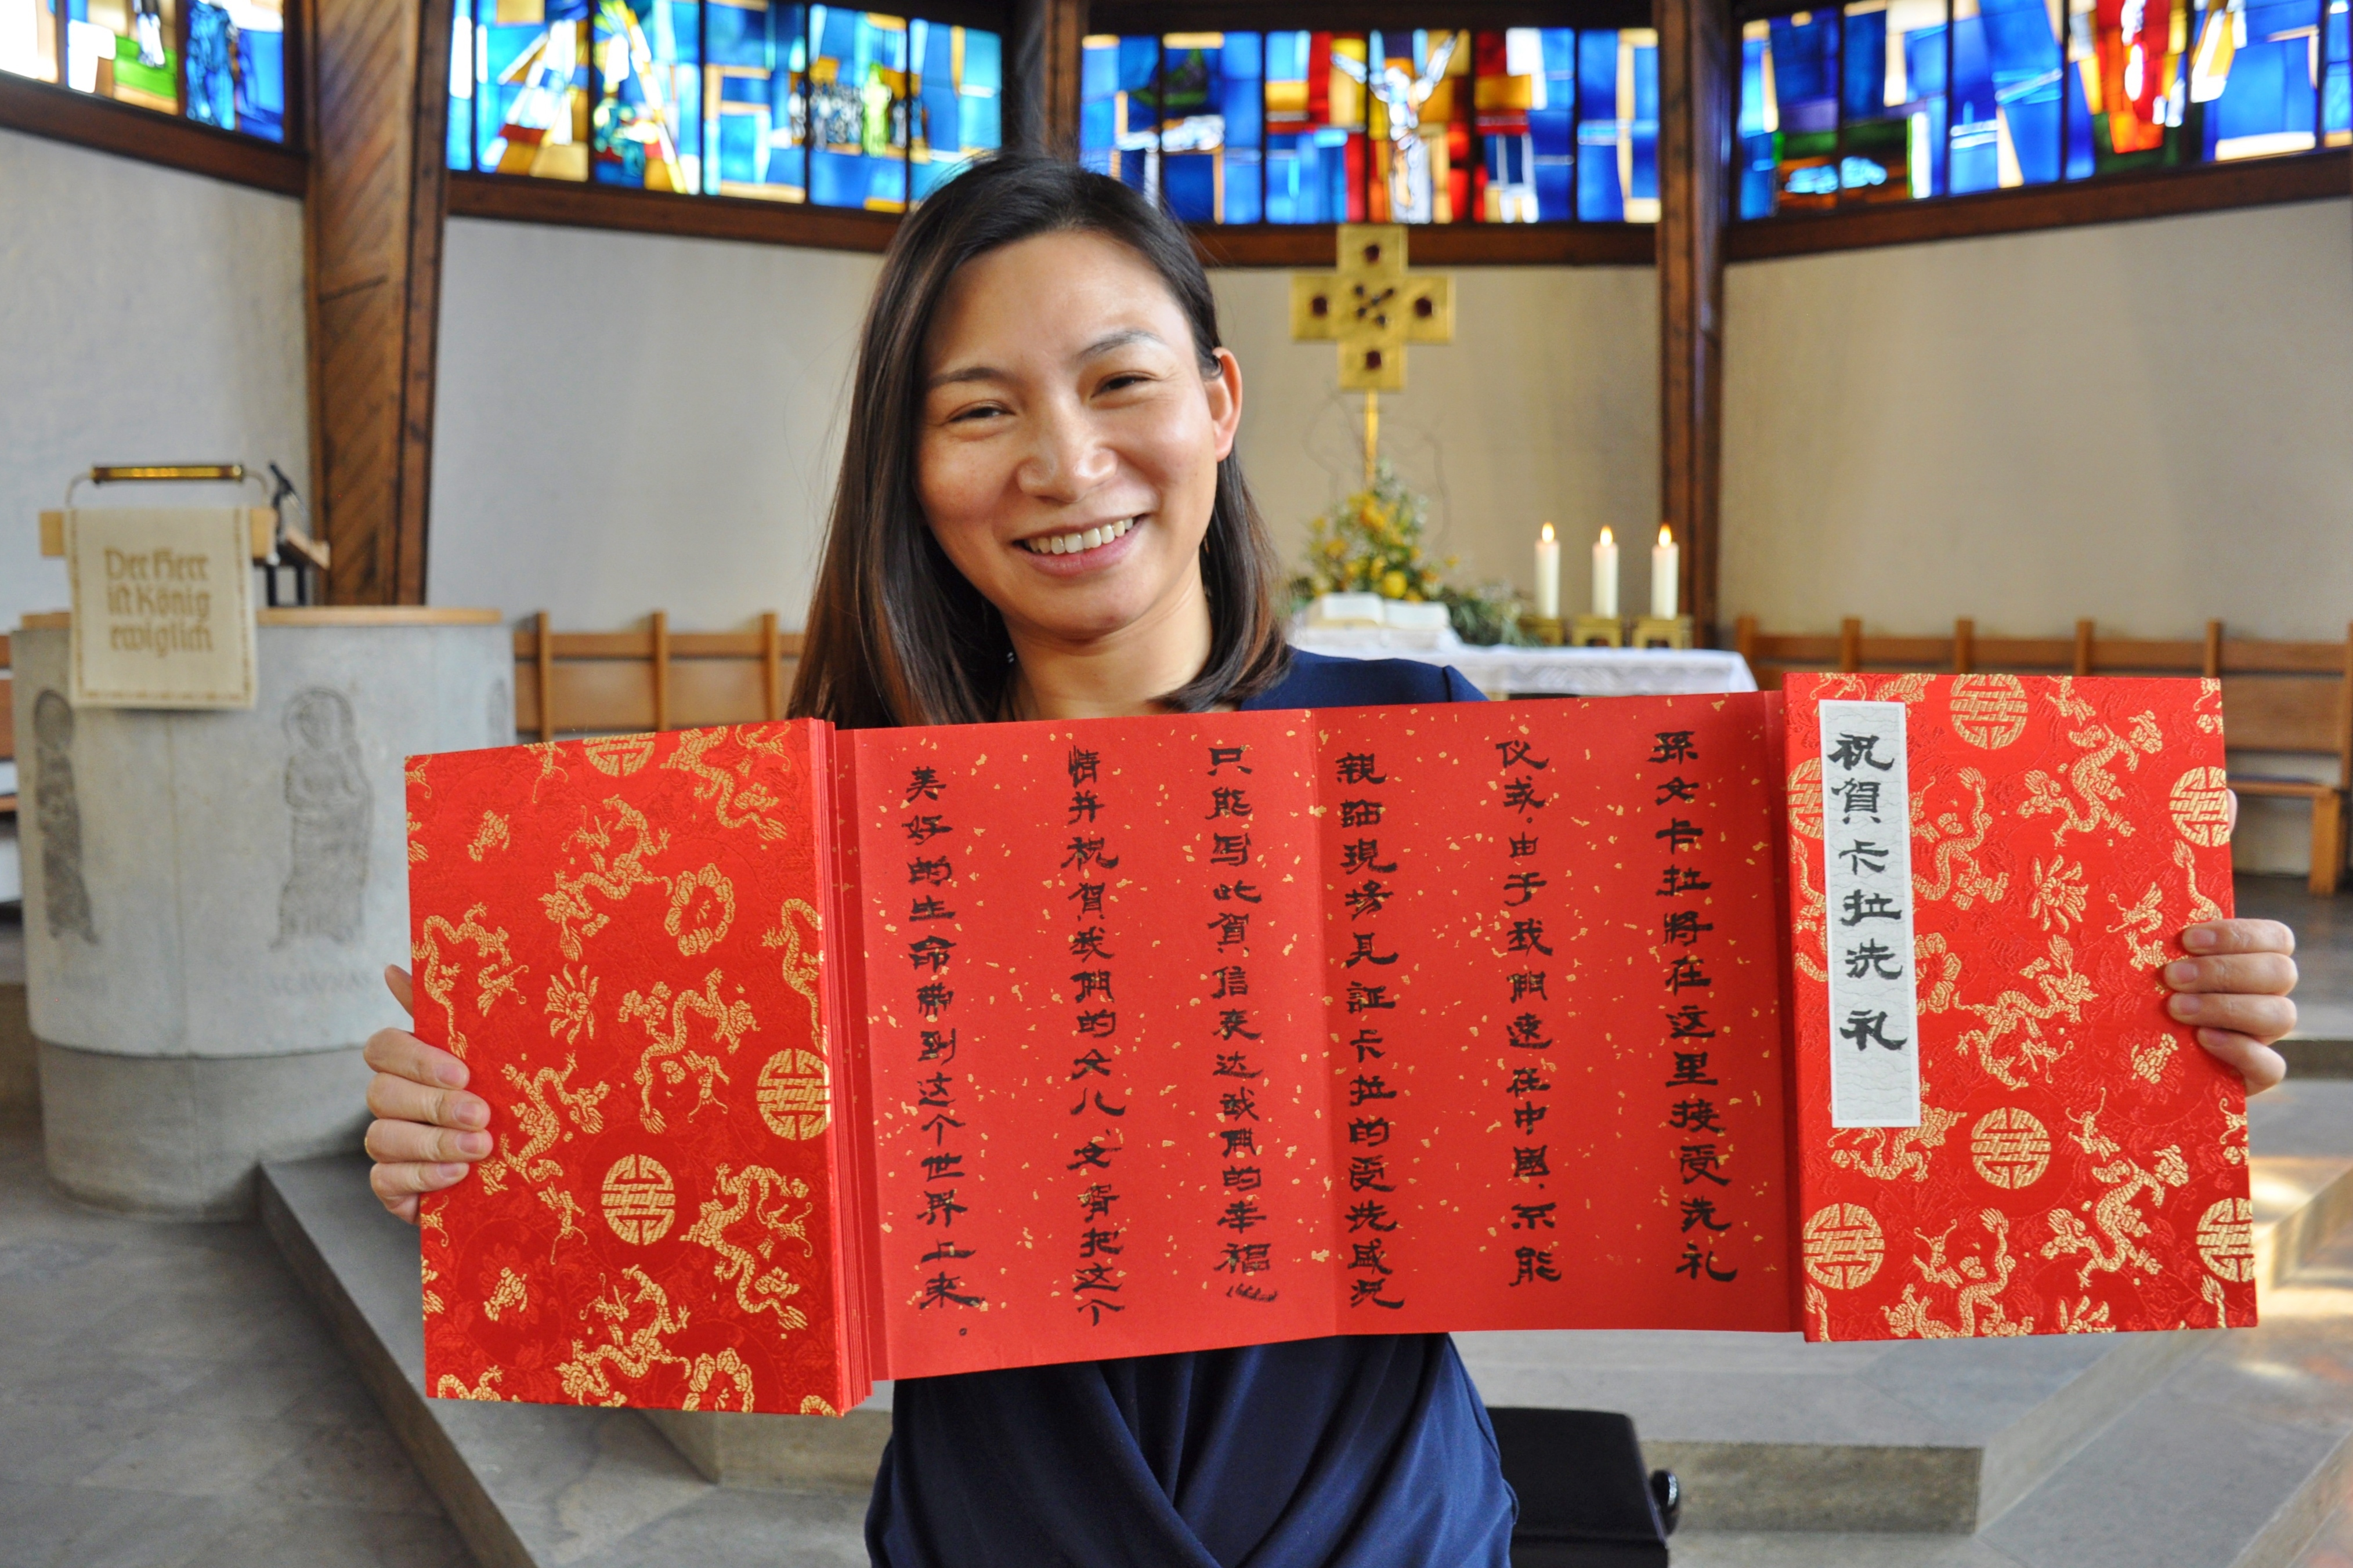 祝賀卡拉洗礼
孫女卡拉將在这里接受洗礼
仪式.由于我們遠在中國.不能
親臨現場見証卡拉的受洗盛况
只能写此賀信表达我們的幸福心
情并祝賀我們的女儿、女婿把这个
美好的生命帶到这个世界上来。
Der Herr
ist König
ewiglich